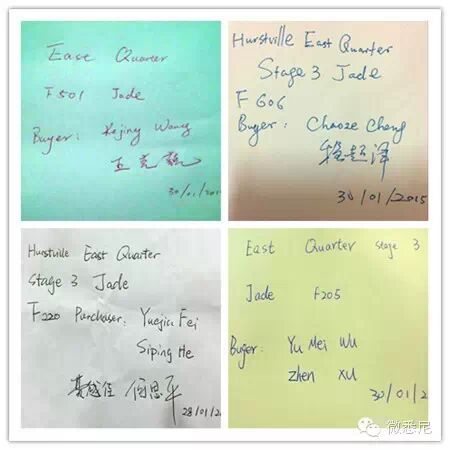 East Quarter
F501 Jade
Buyer: Kejing Wang
王克
30/01/201
Hurstville East Quarter
Stage 3 Jade
F 606
Buyer: Chaoze Cheng
程超泽
30/01/2015
Hurstville East Quarter
Stage 3 Jade
F220 Purchaser: Yuejia Fei
Siping He
何思平
28/01/2
East Quarter Stage 3
Jade F205
Buyer: Yu Mei Wu
zhen xu
30/01/2
微悉尼